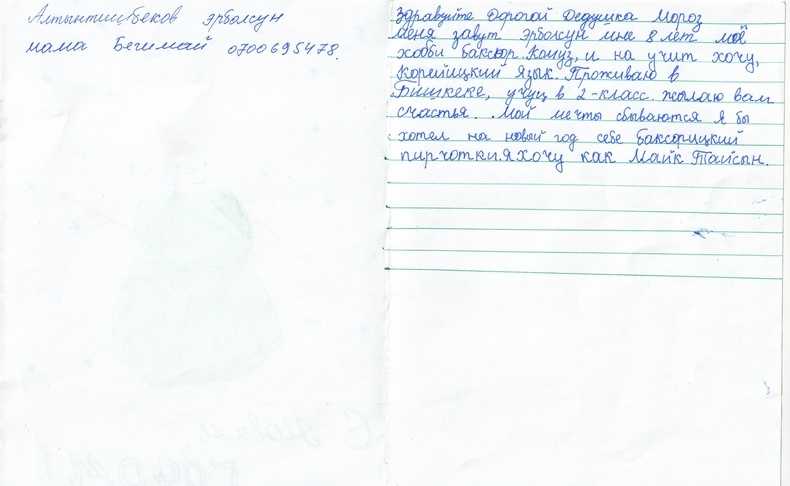 Алтынтишбеков Эрболсун
мама Бегимай 0700695478.
Здравуйте Дорогой Дедушка Мороз
меня завут Эрболсун мне 8 лет мой
хобби баксюр. Комуз, и на учит хочу,
Корейицкий язык. Проживаю в
Бишкеке, учус в 2-класс. жылаю вам
счастья. Мой мечты сбываются я бы
хотел на новый год себе баксорицкий
пирчотки. я хочу как Майк Тайсын.
С Новым
Годом!